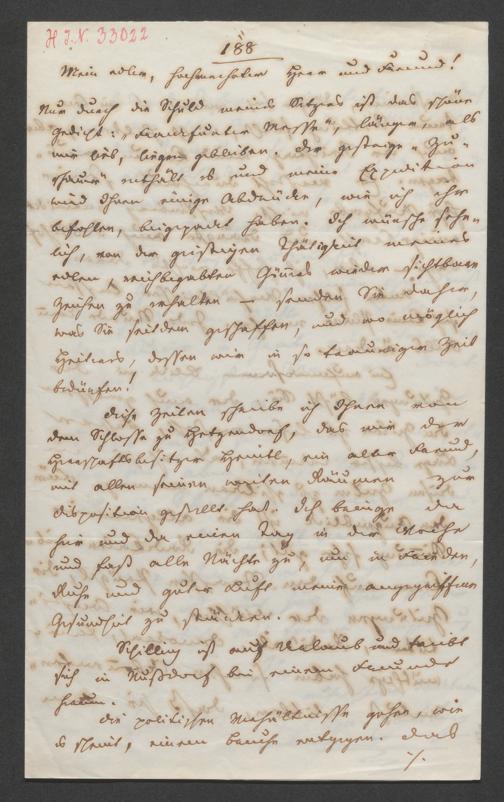 H.I.N. 33022
188
Mein edler, hochverehrter Herr und Freund!
Nur durch die Schuld meines Setzers ist das schöne
Gedicht: „Frankfurter Messe", länger, als
mir lieb, liegen geblieben. Der gestrige „Zu-
schauer" enthält es und meine Expedition
wird Ihnen einige Abdrücke, wie ich ehe
befohlen, beigepackt haben. Ich wünsche sehn-
lich, von der geistigen Thätigkeit meines
edlen, reichbegabten Gönners wieder sichtbare
Zeichen zu erhalten – senden Sie daher,
was Sie seitdem geschaffen, und wo möglich
Heiteres, dessen wir in so trauriger Zeit
bedürfen!
Diese Zeilen schreibe ich Ihnen von
dem Schlosse zu Hetzendorf, das mir der
Herrschaftsbesitzer, ein alter Freund,
mit allen seinen weiten Räumen zur
Disposition gestellt hat. Ich bringe da
hie und da einen Tag in der Woche
und fast alle Nächte zu, um in Frieden,
Ruhe und guter Luft meine angegriffene
Gesundheit zu stärken.
Schilling ist auf Urlaub und treibt
sich in Nußdorf bei einem Freunde
herum.
Die politischen Verhältnisse gehen, wie
es scheint, einem Bruche entgegen. Das
./.